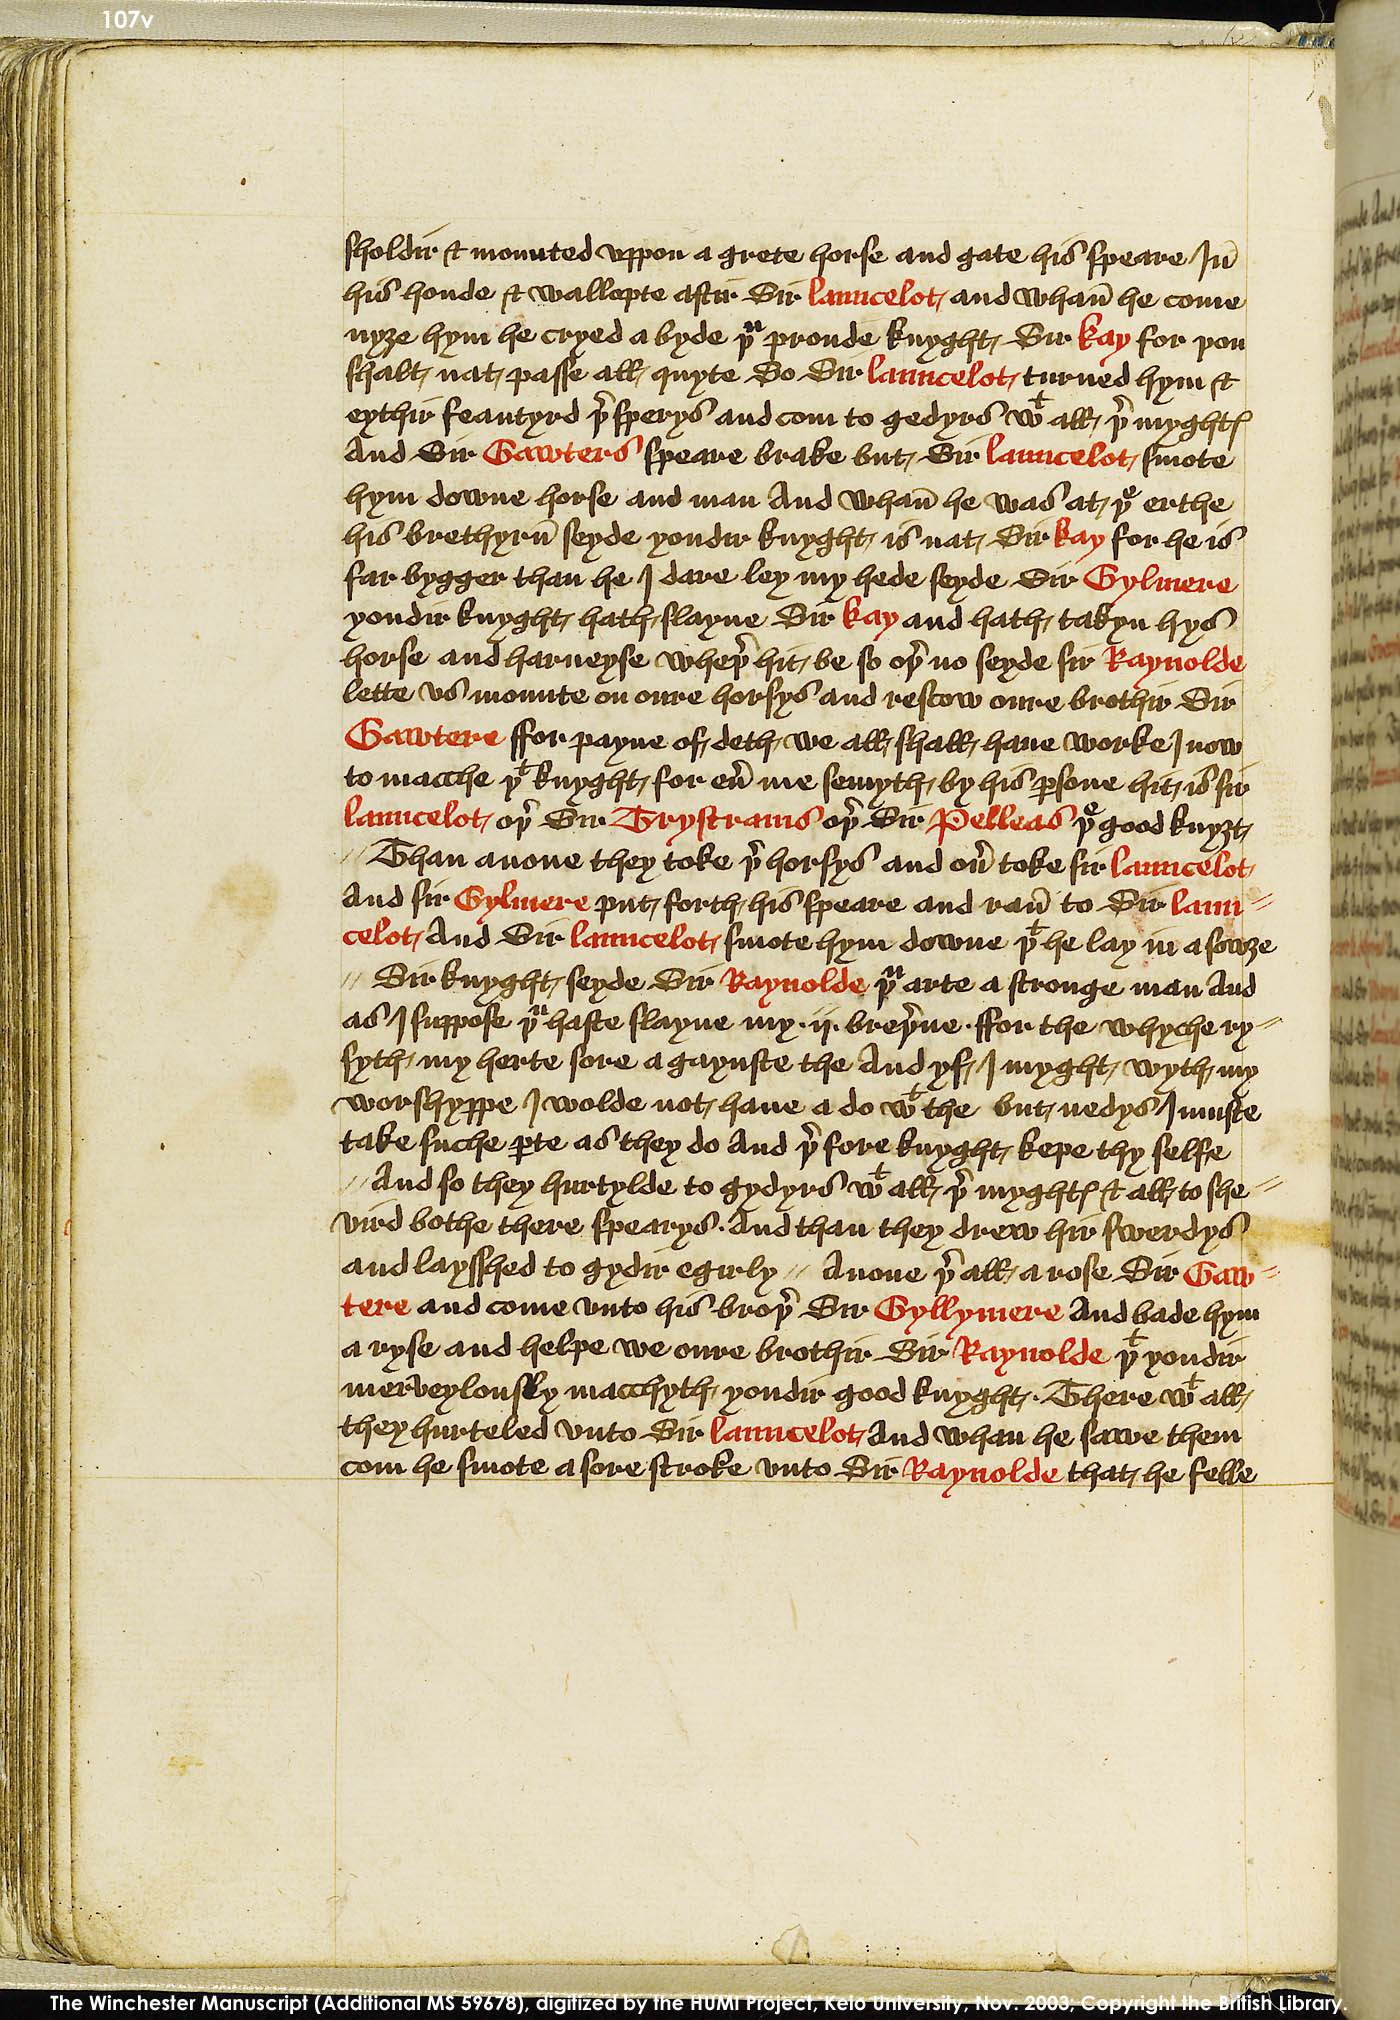 107v
sholdir & mounted vppon a grete horse and gate his speare Jn̄
his honde & wallopte aftir Sir launcelot and whan̄ he come
nyȝe hym he cryed a byde þᵘ proude knyght Sir kay for þou
shalt nat passe all quyte So Sir launcelot turned hym &
eythir feautyrd þr̄ sperys and com to gedyrs wᵗ all þr̄ myghtꝭ
And Sir Gawters speare brake but Sir launcelot smote
hym downe horse and man And whan̄ he was at þᵉ erthe
his brethyrn̄ seyde yondir knyght is nat Sir kay for he is
far bygger than he J dare ley my hede seyde Sir Gylmere
yondir knyght hath slayne Sir kay and hath takyn hys
horse and harneyse wheþr̄ hit be so oþr̄ no seyde sir Raynolde
lette vs mounte on oure horsys and rescow oure brothir Sir
Gawtere ffor payne of deth we all shall haue worke J now
to macche þᵗ knyght for eū me semyth by his ꝑsone hit is sir
launcelot oþr̄ Sir Trystrams oþr̄ Sir Pelleas þᵉ good knyȝt
// Than anone they toke þr̄ horsys and oū toke sir launcelot
And sir Gylmere put forth his speare and ran̄ to Sir laun//
celot And Sir launcelot smote hym downe þᵗ he lay in a sowȝe
// Sir knyght seyde Sir Raynolde þᵘ arte a stronge man And
as J suppose þᵘ haste slayne my · ij · breþr̄ne · ffor the whyche ry//
syth my herte sore a gaynste the And yf J myght wyth my
worshyppe J wolde not haue a do wᵗ the but nedys J muste
take suche ꝑte as they do And þr̄ fore knyght kepe thy selfe
// And so they hurtylde to gydyrs wᵗ all þr̄ myghtꝭ & all to she//
vird bothe there spearys · And than they drew hir swerdys
and laysshed to gydir egirly // Anone þr̄ all a rose Sir Gaw//
tere and come vnto his broþr̄ Sir Gyllymere And bade hym
a ryse and helpe we oure brothir Sir Raynolde þᵗ yondir
mer̄veylously macchyth yondir good knyght · There wᵗ all
they hurteled vnto Sir launcelot And whan he sawe them
com he smote a sore stroke vnto Sir Raynolde that he felle
The Winchester Manuscript (Additional MS 59678), digitized by the HUMI Project, Keio University, Nov. 2003; Copyright the British Library.